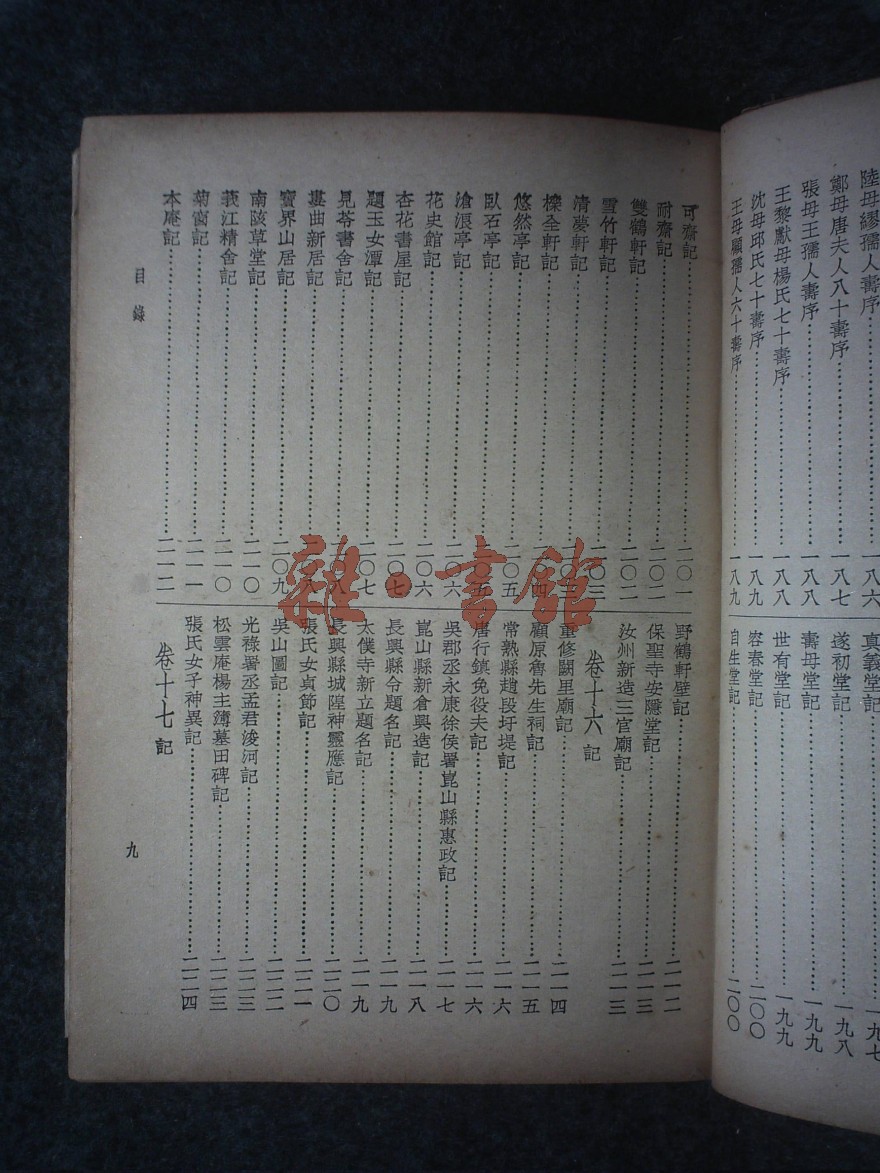 陸母繆孺人壽序……一八六
鄭母唐夫人八十壽序……一八七
張母王孺人壽序……一八八
王黎獻母楊氏七十壽序……一八八
沈母邱氏七十壽序……一八九
王母顧孺人六十壽序……一八九
真義堂記……一九七
遂初堂記……一九八
壽母堂記……一九九
世有堂記……一九九
容春堂記……二〇〇
自生堂記……二〇〇
可齋記……二〇一
耐齋記……二〇二
雙鶴軒記……二〇二
雪竹軒記……二〇三
清夢軒記……二〇三
櫟全軒記……二〇四
悠然亭記……二〇五
臥石亭記……二〇五
滄浪亭記……二〇六
花史館記……二〇六
杏花書屋記……二〇七
題玉女潭記……二〇七
見苓書舍記……二〇八
婁曲新居記……二〇八
寶界山居記……二〇九
南陔草堂記……二一〇
莪江精舍記……二一〇
菊窗記……二一一
本庵記……二一二
野鶴軒壁記……二一二
保聖寺安隱堂記……二一三
汝州新造三官廟記……二一三
卷十六 記
重修闕里廟記……二一四
顧原魯先生祠記……二一五
常熟縣趙段圩堤記……二一六
唐行鎮免役夫記……二一六
吳郡丞永康徐侯署崑山縣惠政記……二一七
崑山縣新倉興造記……二一八
長興縣令題名記……二一九
太僕寺新立題名記……二一九
長興縣城隍神靈應記……二二〇
張氏女貞節記……二二一
吳山圖記……二二二
光祿署丞孟君浚河記……二二三
松雲庵楊主簿墓田碑記……二二三
張氏女子神異記……二二四
卷十七 記
目錄
九
雜·書館